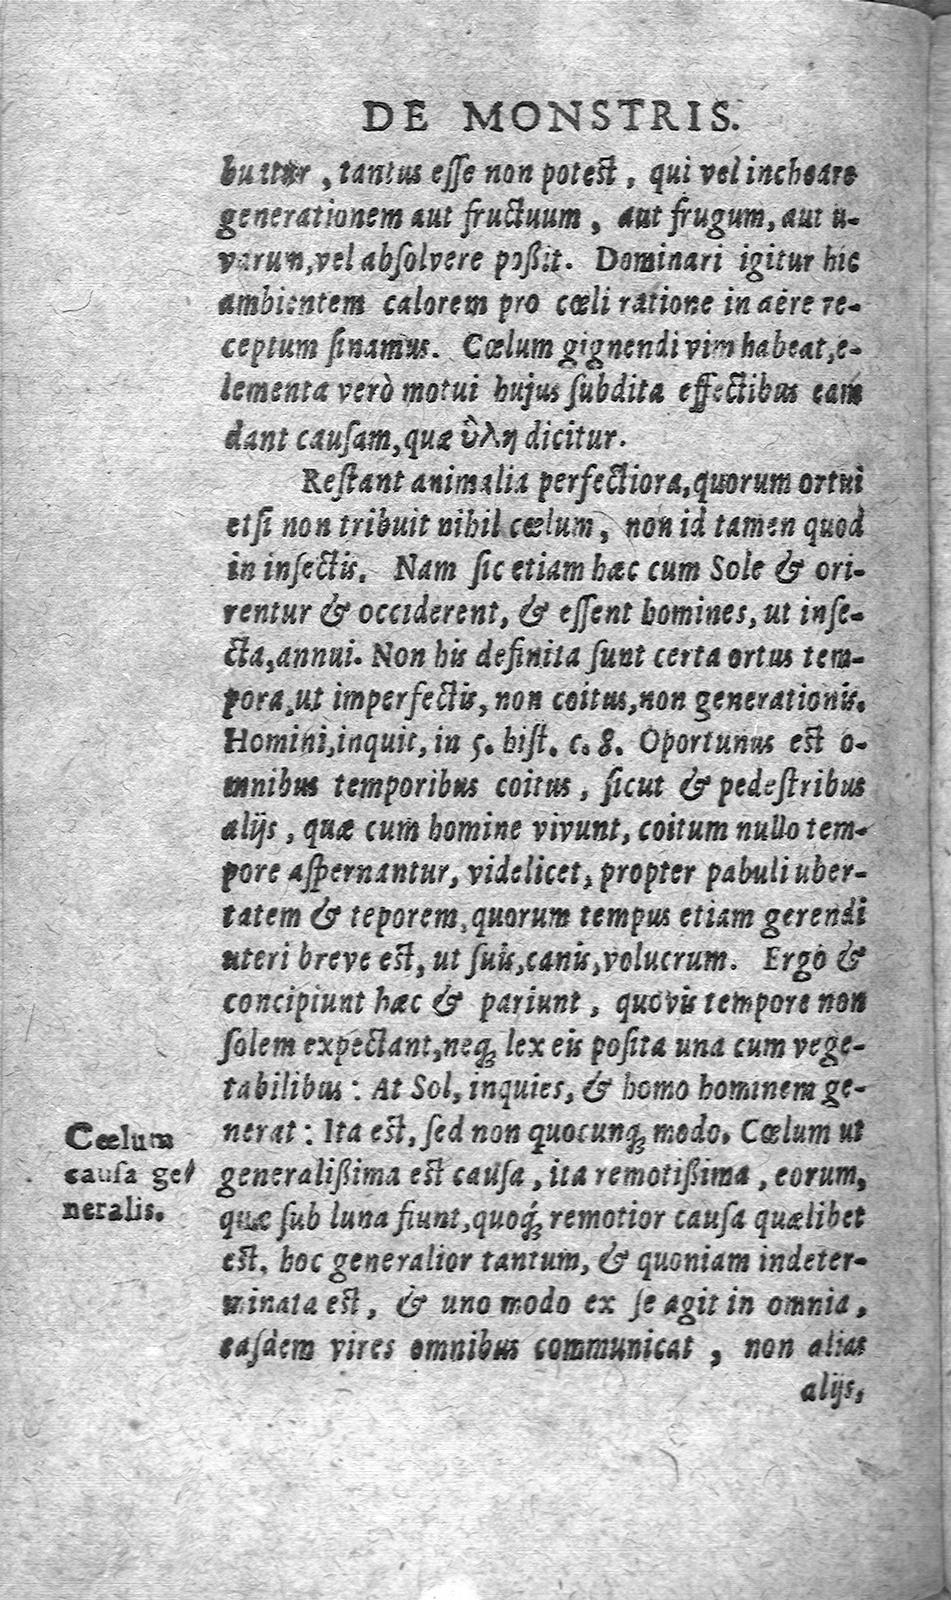 DE MONSTRIS.
buitur, tantus eſſe non potest, qui vel inchoare
generationem aut fructuum, aut frugum, aut u-
varum, vel abſolvere poßit. Dominari igitur hic
ambientem calorem pro cœli ratione in aëre re-
ceptum ſinamus. Cœlum gignendi vim habeat, e-
lementa verò motui hujus ſubdita effectibus eam
dant cauſam, quæ ὕλη dicitur.
Reſtant animalia perfectiora, quorum ortui
etſi non tribuit nihil cœlum, non id tamen quod
in inſectis. Nam ſic etiam hæc cum Sole & ori-
rentur & occiderent, & eſſent homines, ut inſe-
cta, annui. Non his definita ſunt certa ortus tem-
pora, ut imperfectis, non coitus, non generationis.
Homini, inquit, in 5. hiſt. c. 8. Oportunus est o-
mnibus temporibus coitus, ſicut & pedeſtribus
alijs, quæ cum homine vivunt, coitum nullo tem-
pore aſpernantur, videlicet, propter pabuli uber-
tatem & teporem, quorum tempus etiam gerendi
uteri breve est, ut ſuis, canis, volucrum. Ergò &
concipiunt hæc & pariunt, quovis tempore non
ſolem expectant, neq; lex eis poſita una cum vege-
tabilibus: At Sol, inquies, & homo hominem ge-
nerat: Ita est, ſed non quocunq; modo. Cœlum ut
generalißima est cauſa, ita remotißima, eorum,
quæ ſub luna fiunt, quoq́; remotior cauſa quælibet
est, hoc generalior tantum, & quoniam indeter-
minata est, & uno modo ex ſe agit in omnia,
eaſdem vires omnibus communicat, non alias
alijs,
Cœlum
cauſa ge-
neralis.